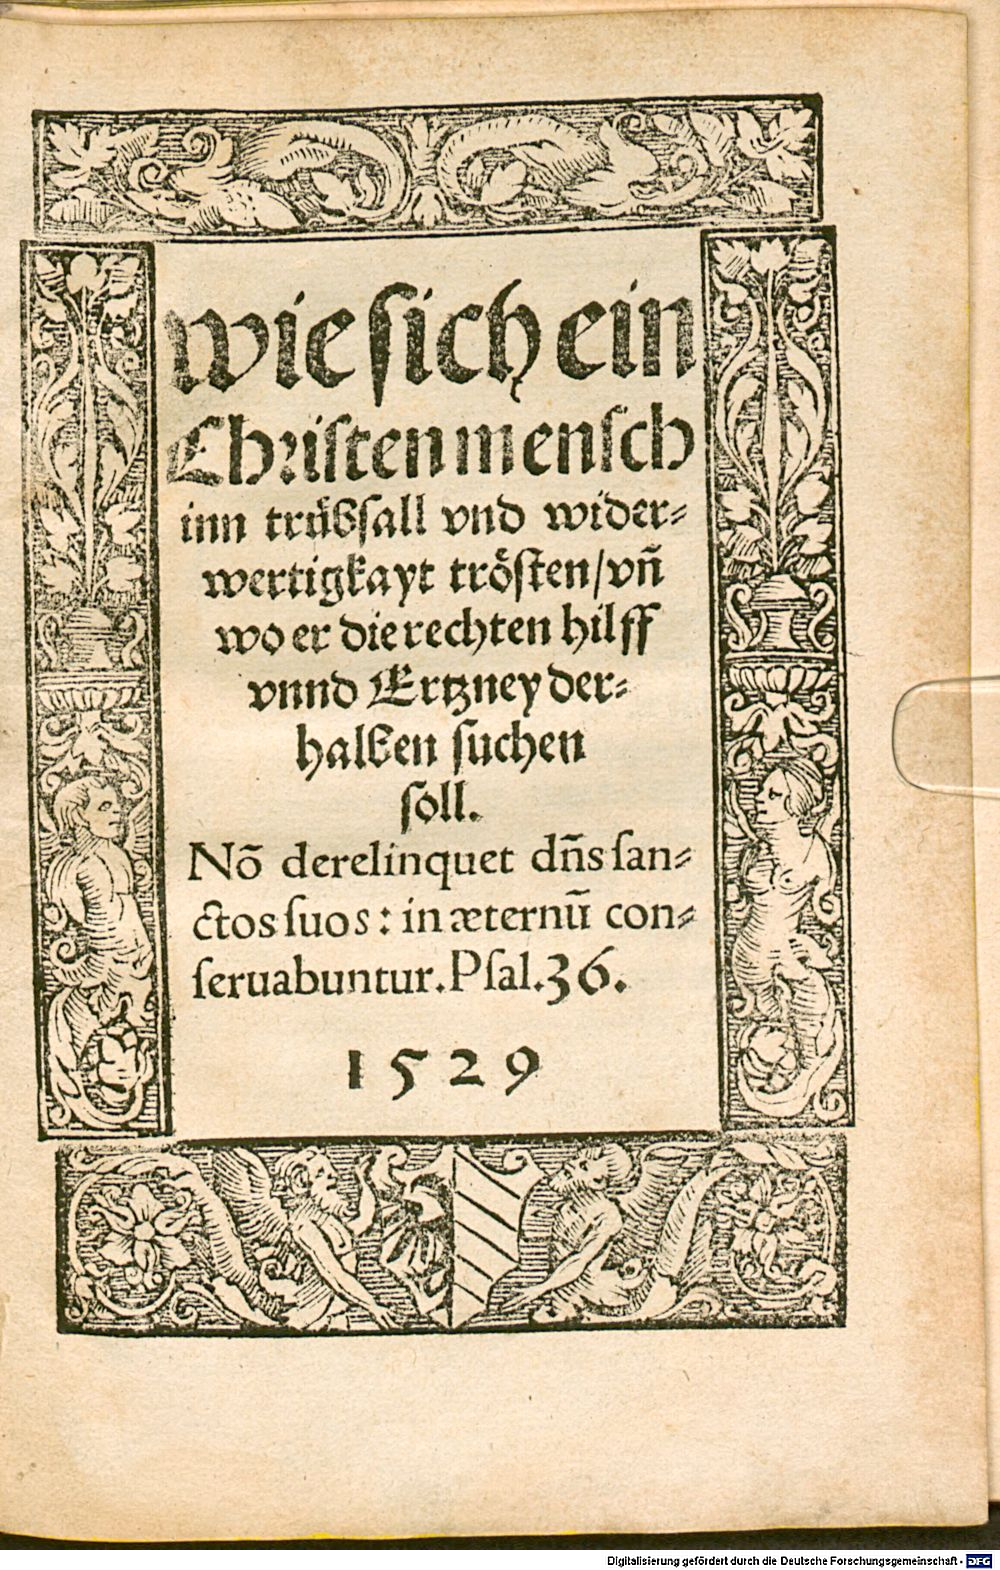 wie sich ein
Christen mensch
inn trübsall vnd wider⸗
wertigkayt trösten/vñ
wo er die rechten hilff
vnnd Ertzney der⸗
halben suchen
soll.
Nõ derelinquet dñs san⸗
ctos suos: in æternũ con⸗
seruabuntur. Psal. 36.
1529
Digitalisierung gefördert durch die Deutsche Forschungsgemeinschaft - DFG